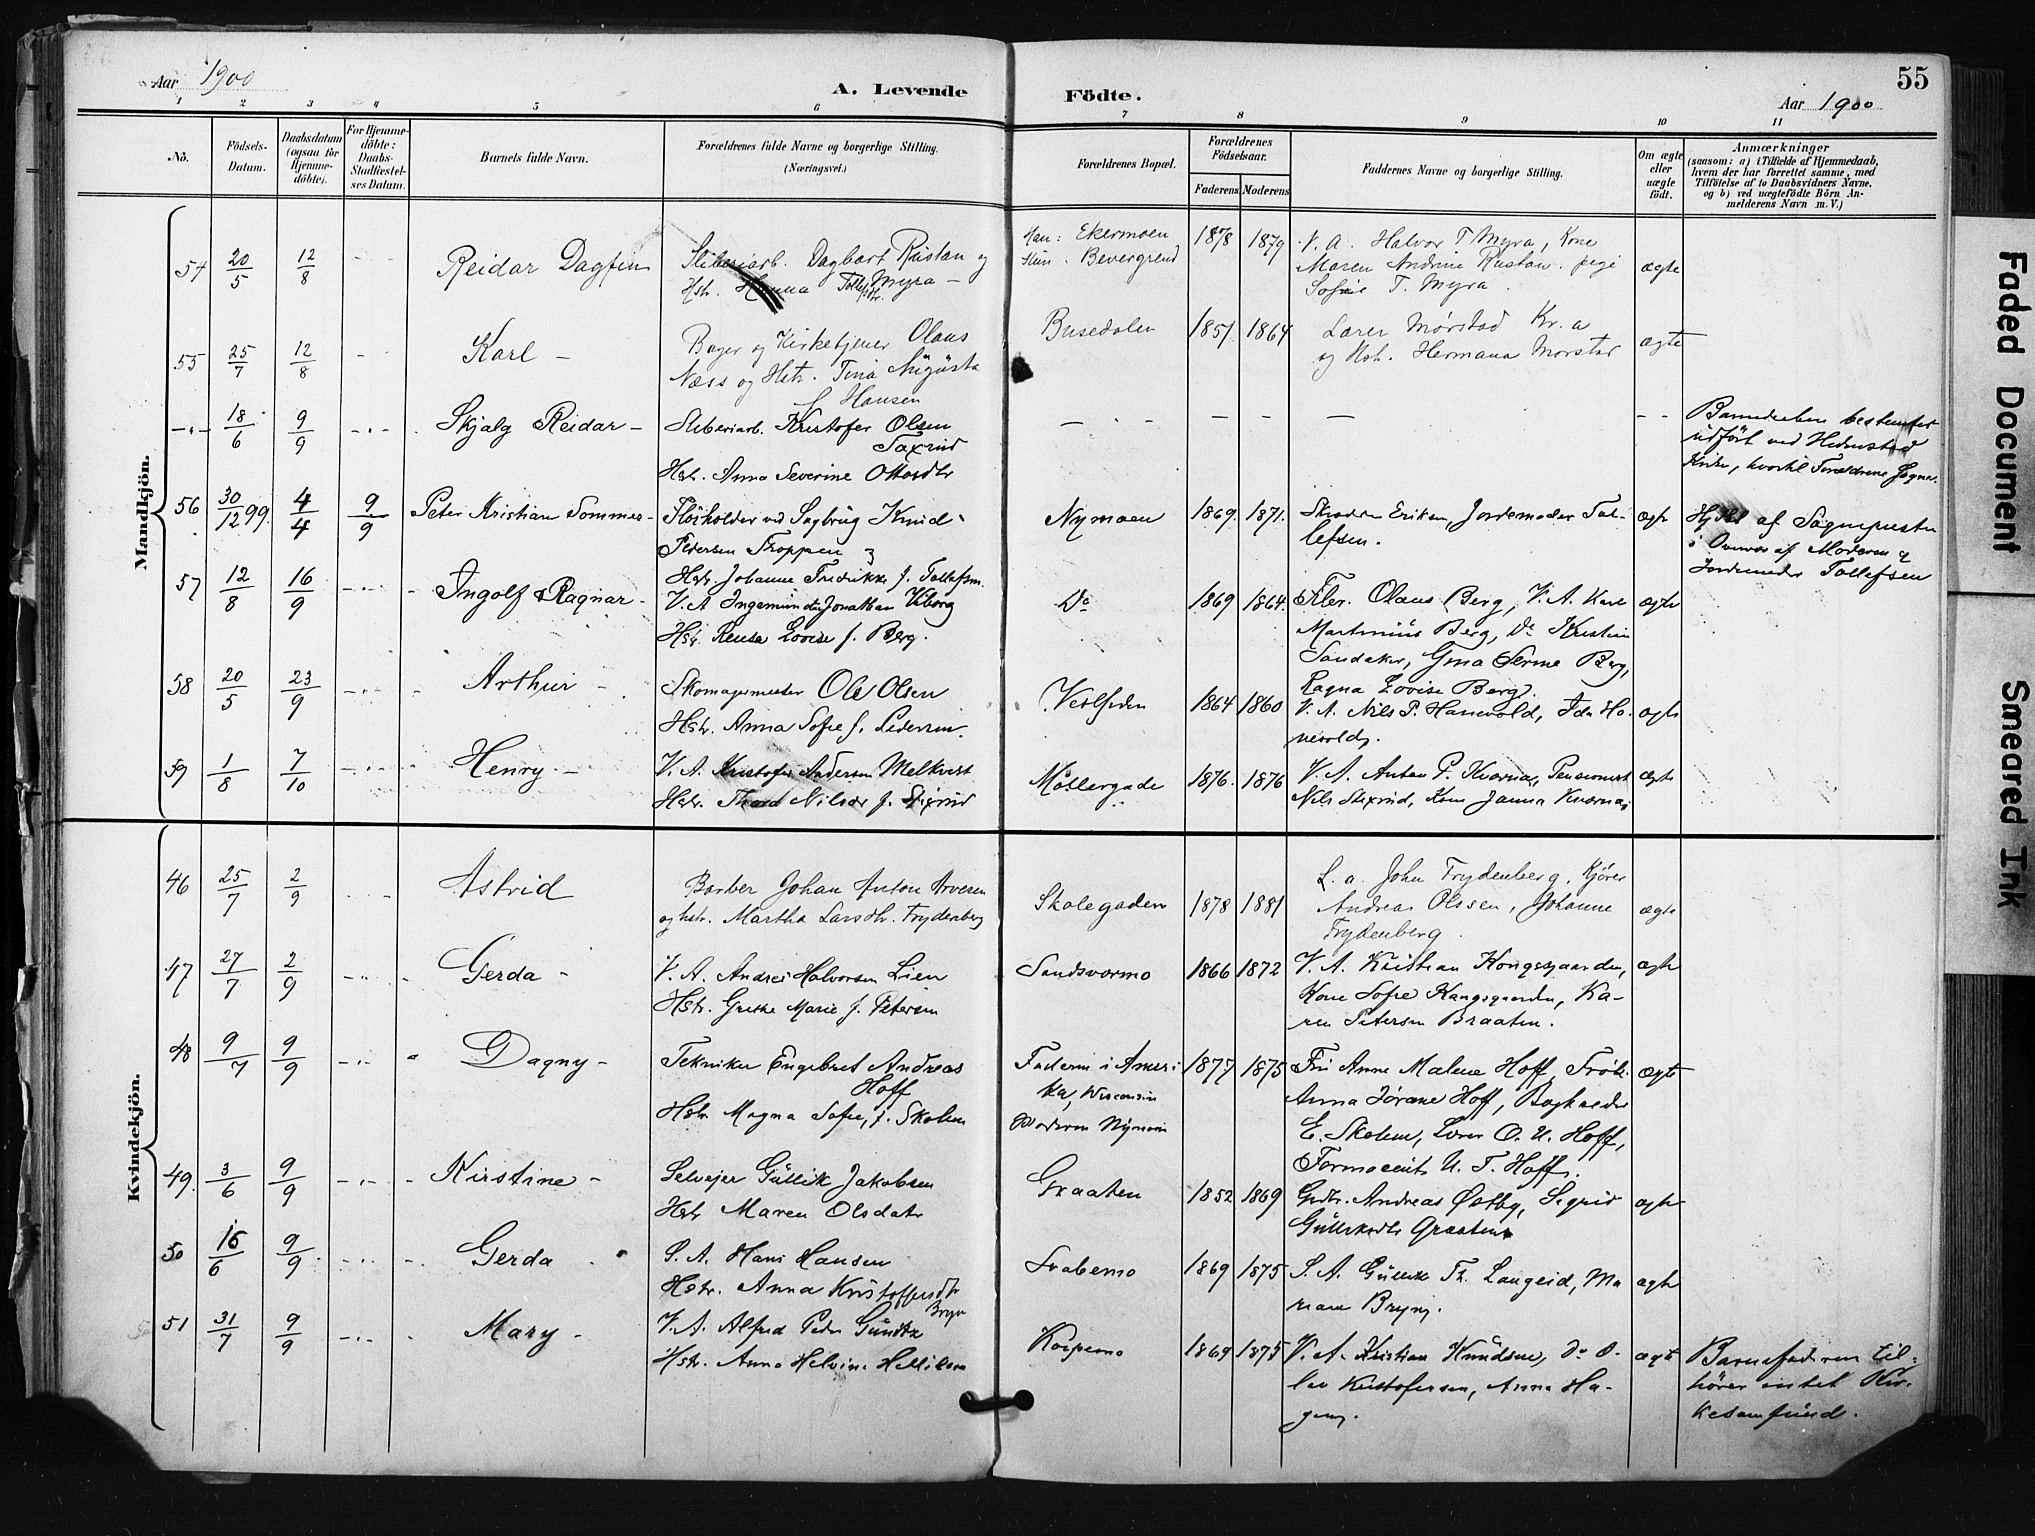 Aar 1900
A. Levende
Födte.
55
Aar 1900
1 2 3 4 5 6 7 8 9 10 11
No.
Födsels-
Datum.
Daabsdatum
(ogsaa for
Hjemme-
döbte).
For Hjemme-
döbte:
Daabs-
Stadfæstel-
ses Datum.
Barnets fulde Navn.
Forældrenes fulde Navne og borgerlige Stilling.
(Næringsvei.)
Forældrenes Bopæl.
Forældrenes
Födselsaar.
Faderens Moderens
Faddernes Navne og borgerlige Stilling.
Om ægte
eller
uægte
födt.
Anmærkninger
(saasom: a) i Tilfælde af Hjemmedaab,
hvem der har forrettet samme, med
Tilföielse af to Daabsvidners Navne.
og b) ved uægtefödte Börn An-
melderens Navn m. V.)
Mandkjön.
54 20/5 12/8 Reidar Dagfin
Sliberiarb. Dagbart Rustan og
Hst. Hanna Tollefsdtr. Myra
Han: Ekermoen
Hun: Bevergrend
1878 1879
V. A. Halvor T Myra, Kone
Maren Andrine Rustan. pige
Sofie T. Myra.
ægte
55 25/7 12/8 Karl
Bager og Kirketjener Olaus
Næss og Hstr. Tina Augusta
f Hansen
Busedalen
1851 1864
Lærer Mørstad Kr. a
og Hst. Hermana Mørstad
ægte
18/6 9/9 Skjalg Reidar
Sliberiarb. Kristofer Olsen
Saxrud
Hstr. Anna Severine Ottosdtr
Barnedaaben
udført ved Hedenstad
Kirke, hvortil Forældrene Sogner.
56 30/12 99 4/4 9/9 Peter Kristian Sommer
Fløiholder ved Sagbrug Knud
Pedersen Troppen og
Hstr. Johanne Fredrikke f. Tollefsen
Nymoen
1869. 1871.
Skrædder Eriksen, Jordemoder Tol-
lefsen.
ægte
Hjdbt af Sognepresten
i Overvær af Moderen og
Jordemoder Tollefsen
57 12/8 16/9 Ingolf Ragnar
V. A Ingemundsen Jonathan Viborg
Hstr. Rensa Lovise f. Berg.
Do
1869 1864.
Olaus Berg, V. A. Karl
Martinius Berg, Do Kristian
Sandaker, Gina Serine Berg,
Ragna Lovise Berg.
ægte
58 20/5 23/9 Arthur
Skomagermester Ole Olsen
Hstr. Anna Sofie f. Pedersen.
Vestsiden
1864 1860
V. A. Nils P. Hanevold, Ida Ha-
nevold.
ægte
59 1/8 7/10 Henry
V. A. Kristofer Andersen Melkvist
Hstr. Thora Nilsdr f. Stixrud
Møllergade
1876. 1876
V. A. Anton P. Kværnaas, Pensionist
Nils Stixrud, Kone Janna Kværnaas
ægte
Kvindekjön.
46 25/7 2/9 Astrid
Barber Johan Anton Arvesen
og hstr. Martha Larsdtr. Frydenberg
Skolegaden
1878 1881
L. a. John Frydenberg, Kjører
Andreas Olssen, Johanne
Frydenberg.
ægte
47 27/7 2/9 Gerda
V. A. Andreas Halvorsen Lien
Hstr. Grethe Marie f. Petersen
Sandsværmo
1866 1872
V. A. Kristian Kongsgaarden,
Kone Sofie Kongsgaarden, Ka-
ren Petersen Braaten.
ægte
48 9/7 9/9 Dagny
Tekniker Engebret Andreas
Hoff
Hstr Magna Sofie, f. Skolem
Faderen i Ameri
ka, Wisconsin
Moderen Nymoen
1877 1875
Fru Anne Malene Hoff, Frök.
Anna Jörane Hoff, Bogholder
E. Skolem, Lærer O. U. Hoff,
Farmaceut U. T. Hoff.
ægte
49 3/6 9/9 Kirstine
Selveier Gullik Jakobsen
Hstr Maren Olsdatr
Graaten
1852 1869
Grdbr. Andreas Østby, Sigrid
Gulliksdtr Graaten
ægte
50 16/6 9/9 Gerda
S. A. Hans Hansen
Hstr. Anna Kristoffersdtr
Bryn
Svabemo
1869 1875
S. A. Gullik Th. Langeid, Ma
riane Bryn.
ægte
51 31/7 9/9 Mary
V. A. Alfred Peder Gundtz
Hstr. Anna Helvine Helliksen
Korpemo
1869 1875
V. A. Kristian Knudsen, do O-
lav Kristofersen, Anna Ha-
gen.
ægte
Barnefaderen til-
hører intet Kir-
kesamfund.
Faded Document
Smeared Ink